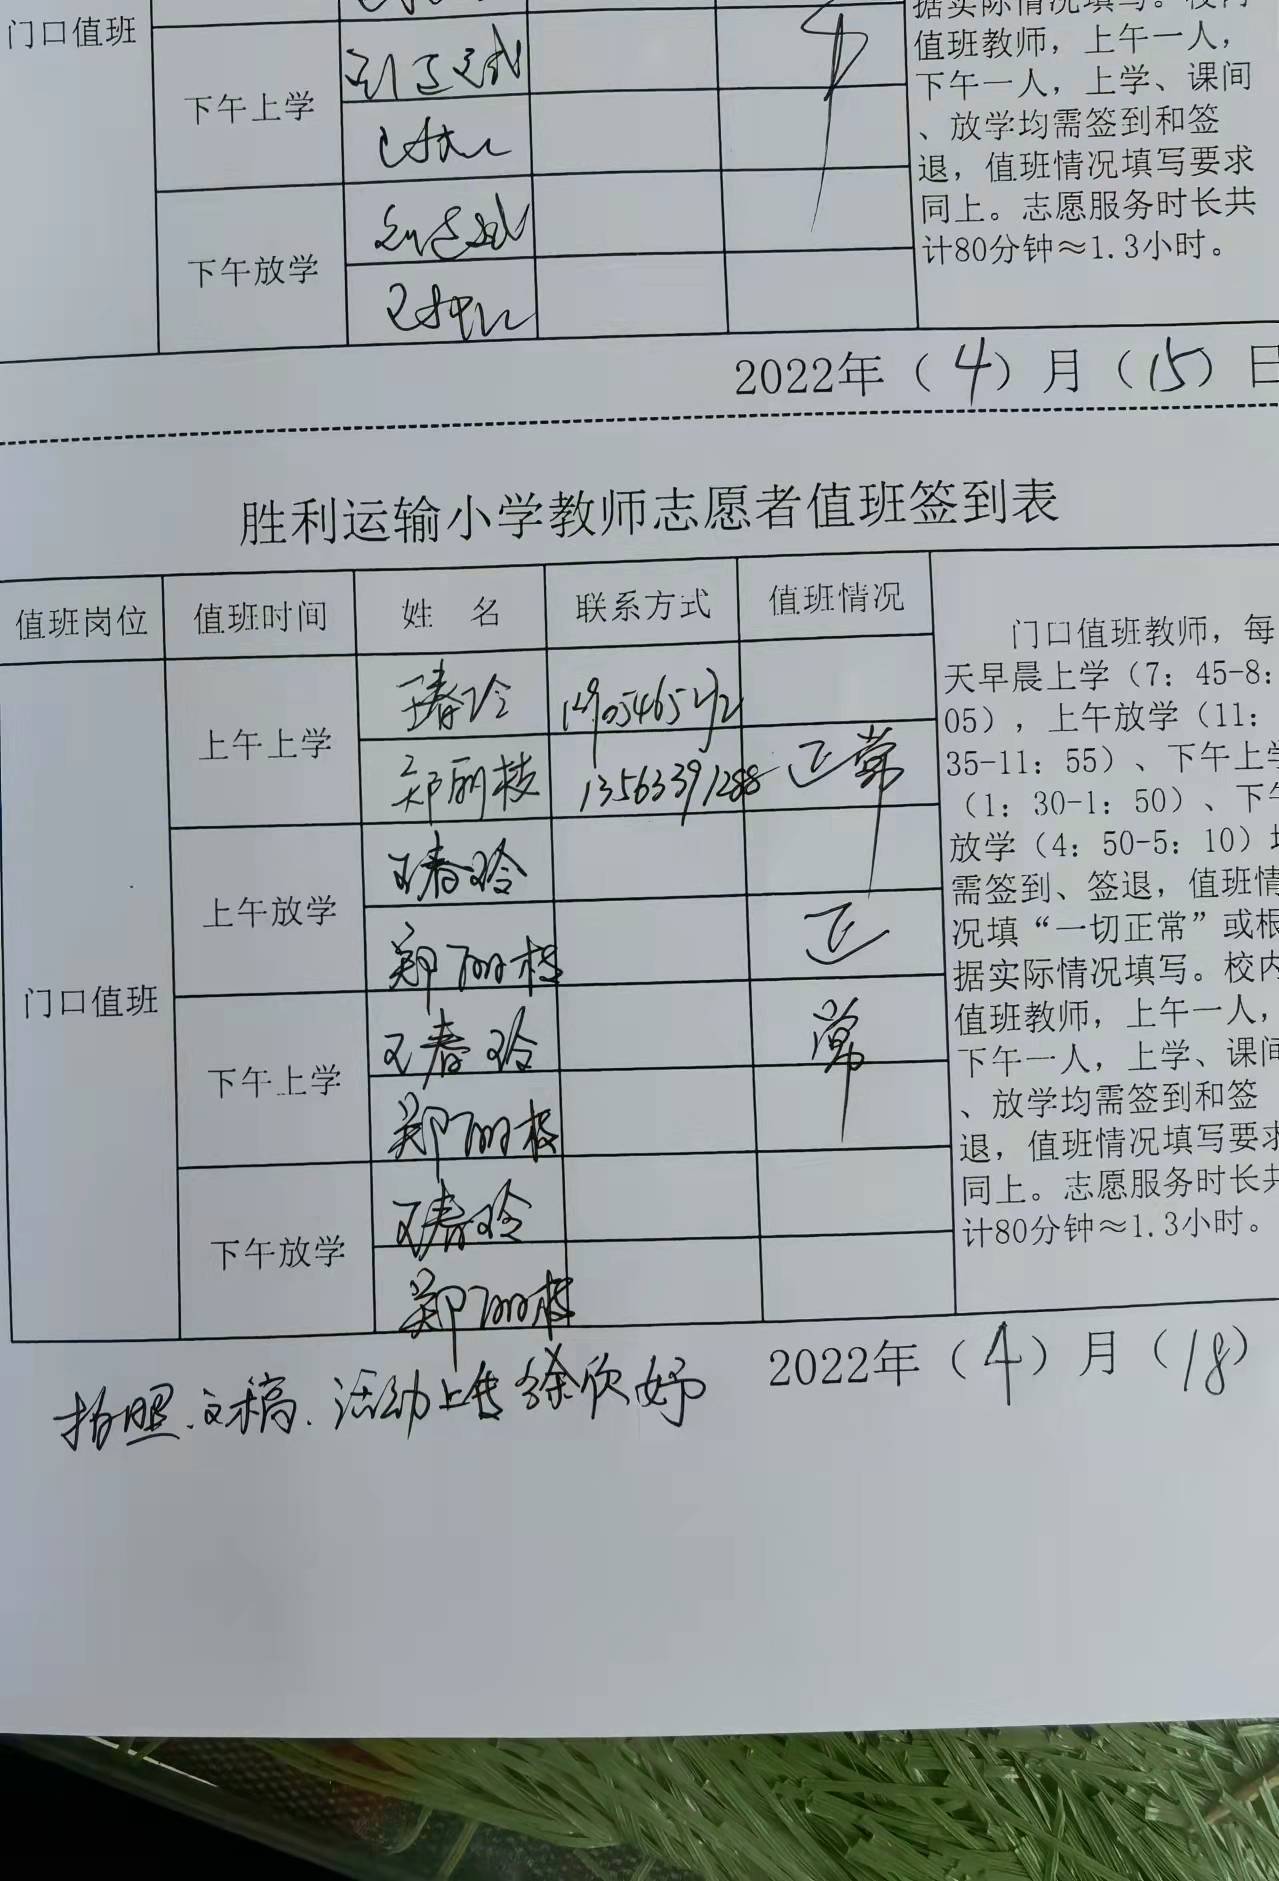 门口值班
据实际情况填写。校内
值班教师，上午一人，
下午一人，上学、课间
、放学均需签到和签
退，值班情况填写要求
同上。志愿服务时长共
计80分钟≈1.3小时。
下午上学
下午放学
2022年（4）月（15）日
胜利运输小学教师志愿者值班签到表
值班岗位 值班时间 姓 名 联系方式 值班情况
门口值班
上午上学 王春玲
郑丽枝 13563391288 正常
上午放学 王春玲
郑丽枝 正
下午上学 王春玲 常
郑丽枝
下午放学 王春玲
郑丽枝
门口值班教师，每
天早晨上学（7：45-8：
05），上午放学（11：
35-11：55）、下午上学
（1：30-1：50）、下午
放学（4：50-5：10）均
需签到、签退，值班情
况填“一切正常”或根
据实际情况填写。校内
值班教师，上午一人，
下午一人，上学、课间
、放学均需签到和签
退，值班情况填写要求
同上。志愿服务时长共
计80分钟≈1.3小时。
2022年（4）月（18）
拍照.文稿.活动上传 徐欣妤